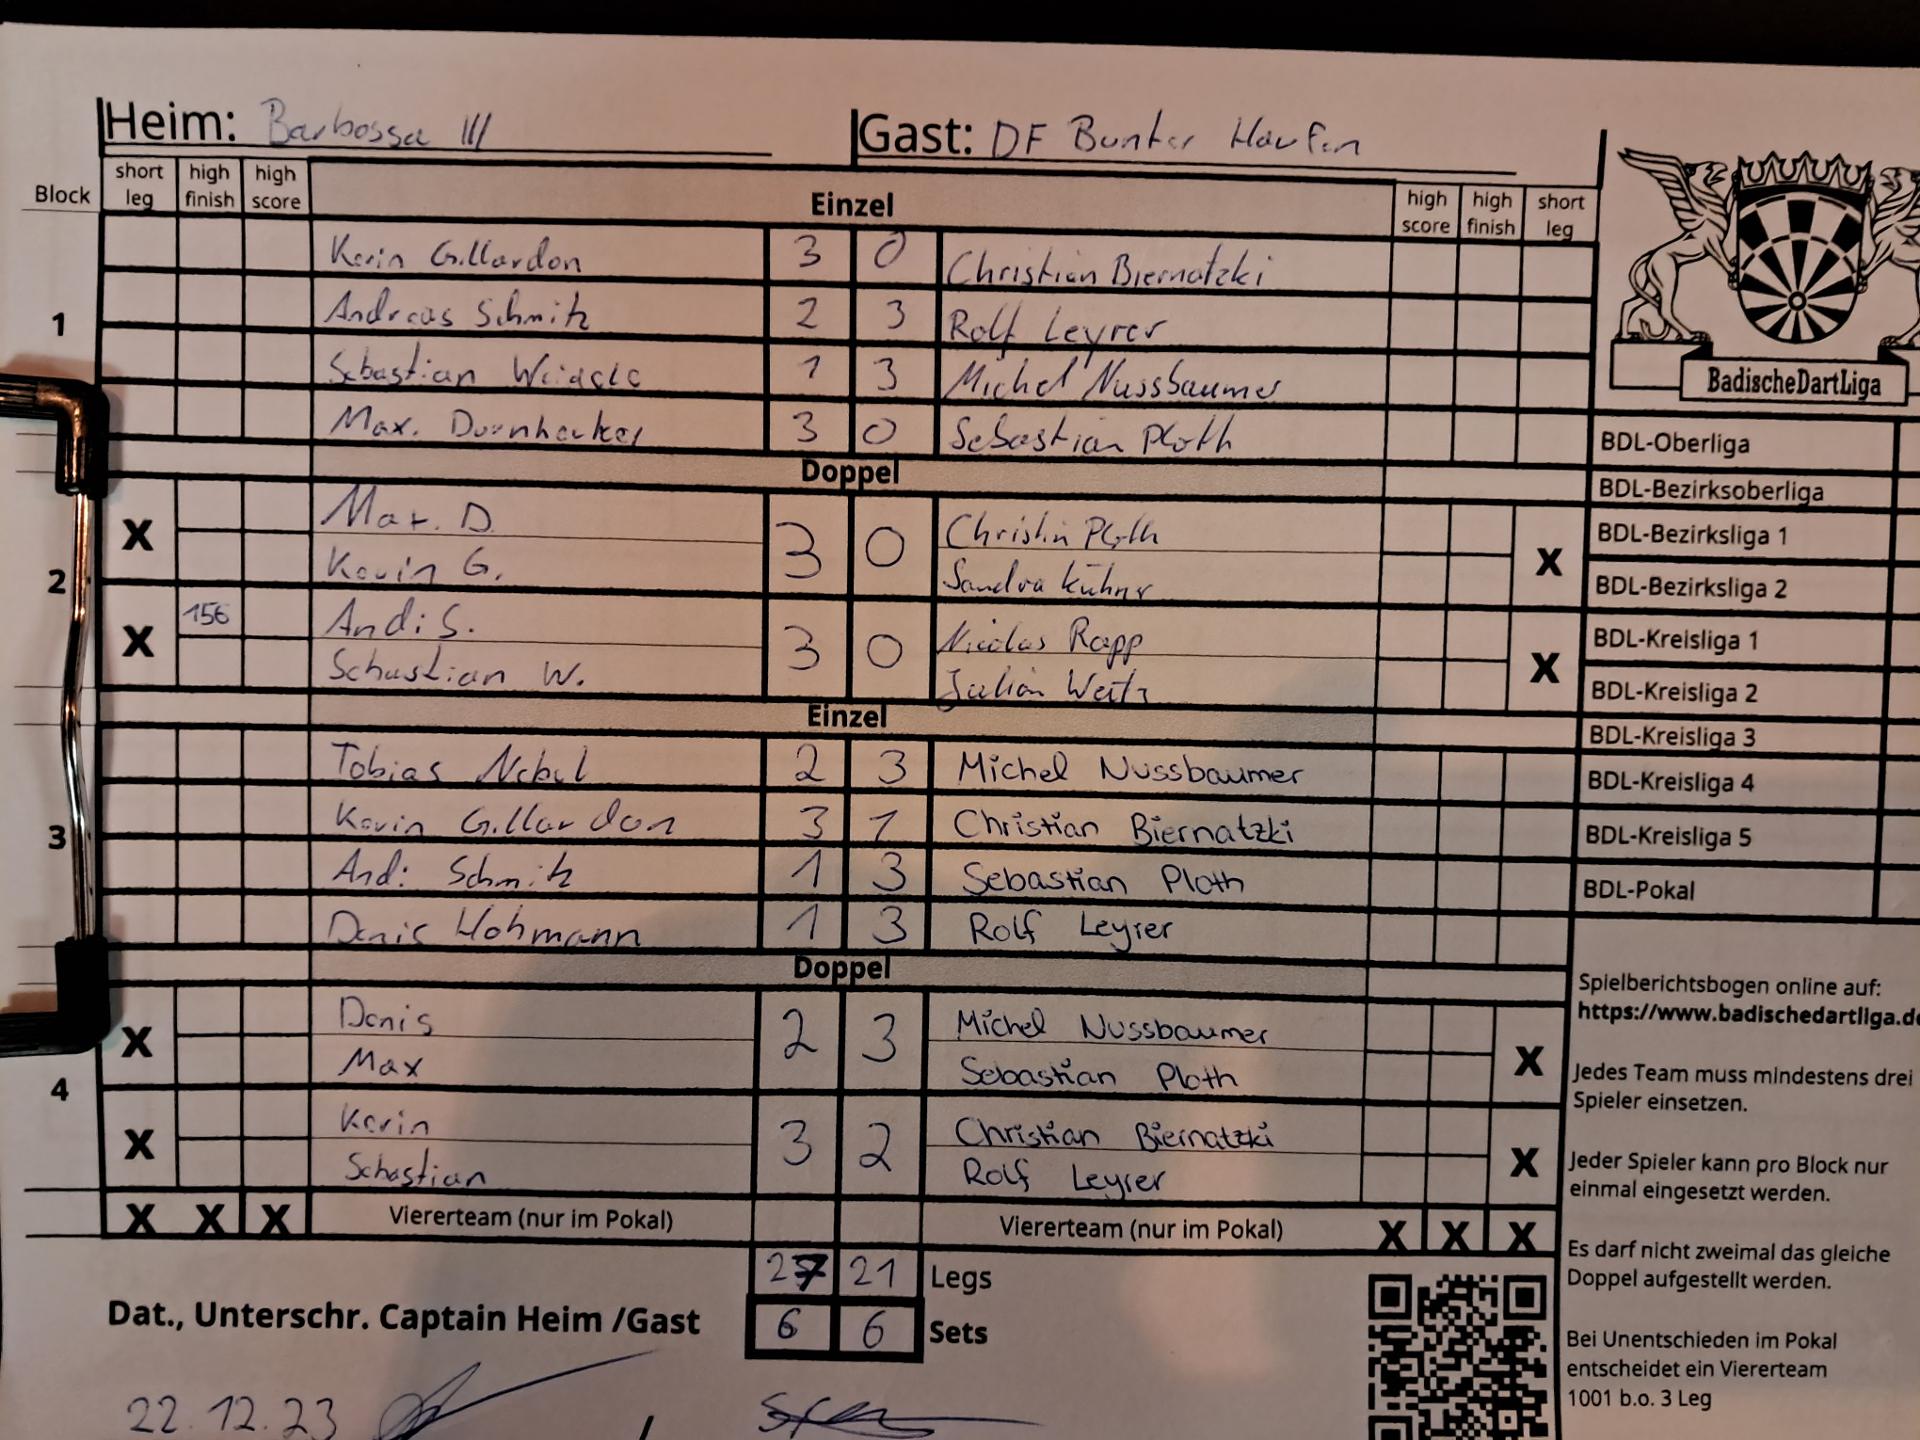 Heim: Barbossa III Gast: DF Bunter Haufen
Block short leg high finish high score Einzel high score high finish short leg
1
Kevin Gillardon 3 0 Christian Biernatzki
Andreas Schmitz 2 3 Rolf Leyrer
Sebastian Weigele 1 3 Michel Nussbaumer
Max. Dornhecker 3 0 Sebastian Ploth
BadischeDartLiga
BDL-Oberliga
Doppel
BDL-Bezirksoberliga
2
X Max. D. 3 0 Christin Ploth X
Kevin G. Sandra Kühner
BDL-Bezirksliga 1
BDL-Bezirksliga 2
X 156 Andi S. 3 0 Nicolas Rapp X
Sebastian W. Julian Weitz
BDL-Kreisliga 1
BDL-Kreisliga 2
Einzel
BDL-Kreisliga 3
3
Tobias Nebel 2 3 Michel Nussbaumer
BDL-Kreisliga 4
Kevin Gillardon 3 1 Christian Biernatzki
BDL-Kreisliga 5
Andi Schmitz 1 3 Sebastian Ploth
BDL-Pokal
Denis Hohmann 1 3 Rolf Leyrer
Doppel
4
X Denis 2 3 Michel Nussbaumer X
Max Sebastian Ploth
X Kevin 3 2 Christian Biernatzki X
Sebastian Rolf Leyrer
X X X Viererteam (nur im Pokal) Viererteam (nur im Pokal) X X X
27 21 Legs
Dat., Unterschr. Captain Heim /Gast 6 6 Sets
22.12.23 /
Spielberichtsbogen online auf:
https://www.badischedartliga.de
Jedes Team muss mindestens drei
Spieler einsetzen.
Jeder Spieler kann pro Block nur
einmal eingesetzt werden.
Es darf nicht zweimal das gleiche
Doppel aufgestellt werden.
Bei Unentschieden im Pokal
entscheidet ein Viererteam
1001 b.o. 3 Leg